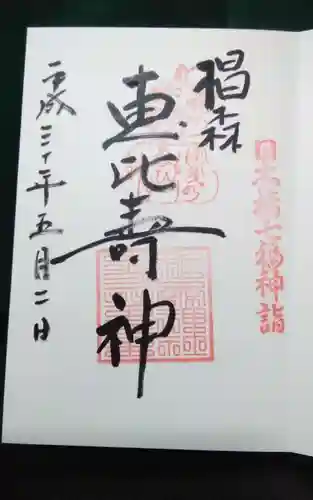 日本橋七福神詣
椙森
恵比寿神
平成三十年五月二日